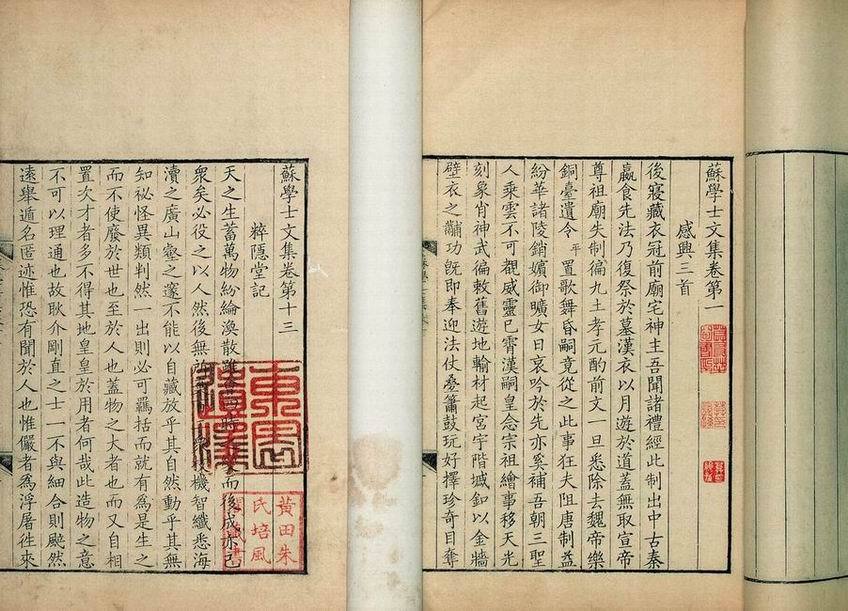 蘇學士文集卷第一
感興三首
後寢藏衣冠前廟宅神主吾聞諸禮經此制出中古秦
嬴食先法乃復祭於墓漢衣以月遊於道蓋無取宣帝
尊祖廟失制徧九土孝元酌前文一旦悉除去魏帝樂
銅臺遺令平置歌舞昏嗣竟從之此事狂夫阻唐制益
紛華諸陵銷嬪御曠女日哀吟於先亦奚補吾朝三聖
人乘雲不可覩威靈已霄漢嗣皇念宗祖繪事移天光
刻象肖神武徧敕舊遊地輸材起宮宇階墄釦以金牆
壁衣之黼功旣即奉迎法仗疊簫鼓玩好擇珍奇目奪
蘇學士文集卷第十三
粹隱堂記
天之生蓄萬物紛綸渙散雖而後成亦已
衆矣必役之以人然後無機智纖悉海
瀆之廣山壑之邃不能以自藏放乎其自然動乎其無
知祕怪異類判然一出則必羈括而就有為是生之
而不使廢於世也至於人也蓋物之大者也而又自相
置次才者多不得其地皇皇於用者何哉此造物之意
不可以理通也故耿介剛直之士一不與細合則颰然
遠舉遁名匿迹惟恐有聞於人也惟儼者為浮屠徃來
黃田朱
氏培風
閣藏書